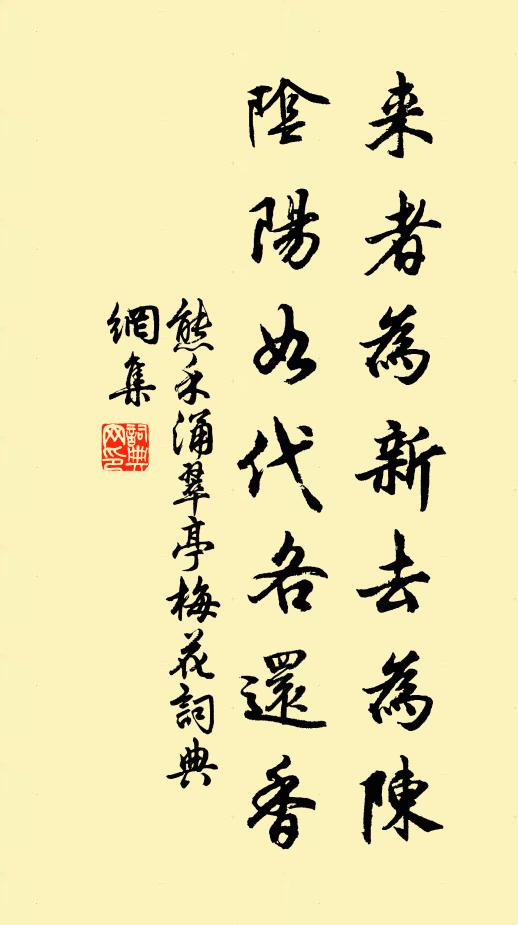 来者為新去為陳
陰陽如代各還香
熊禾涌翠亭梅花詞典
網集
詞典網印